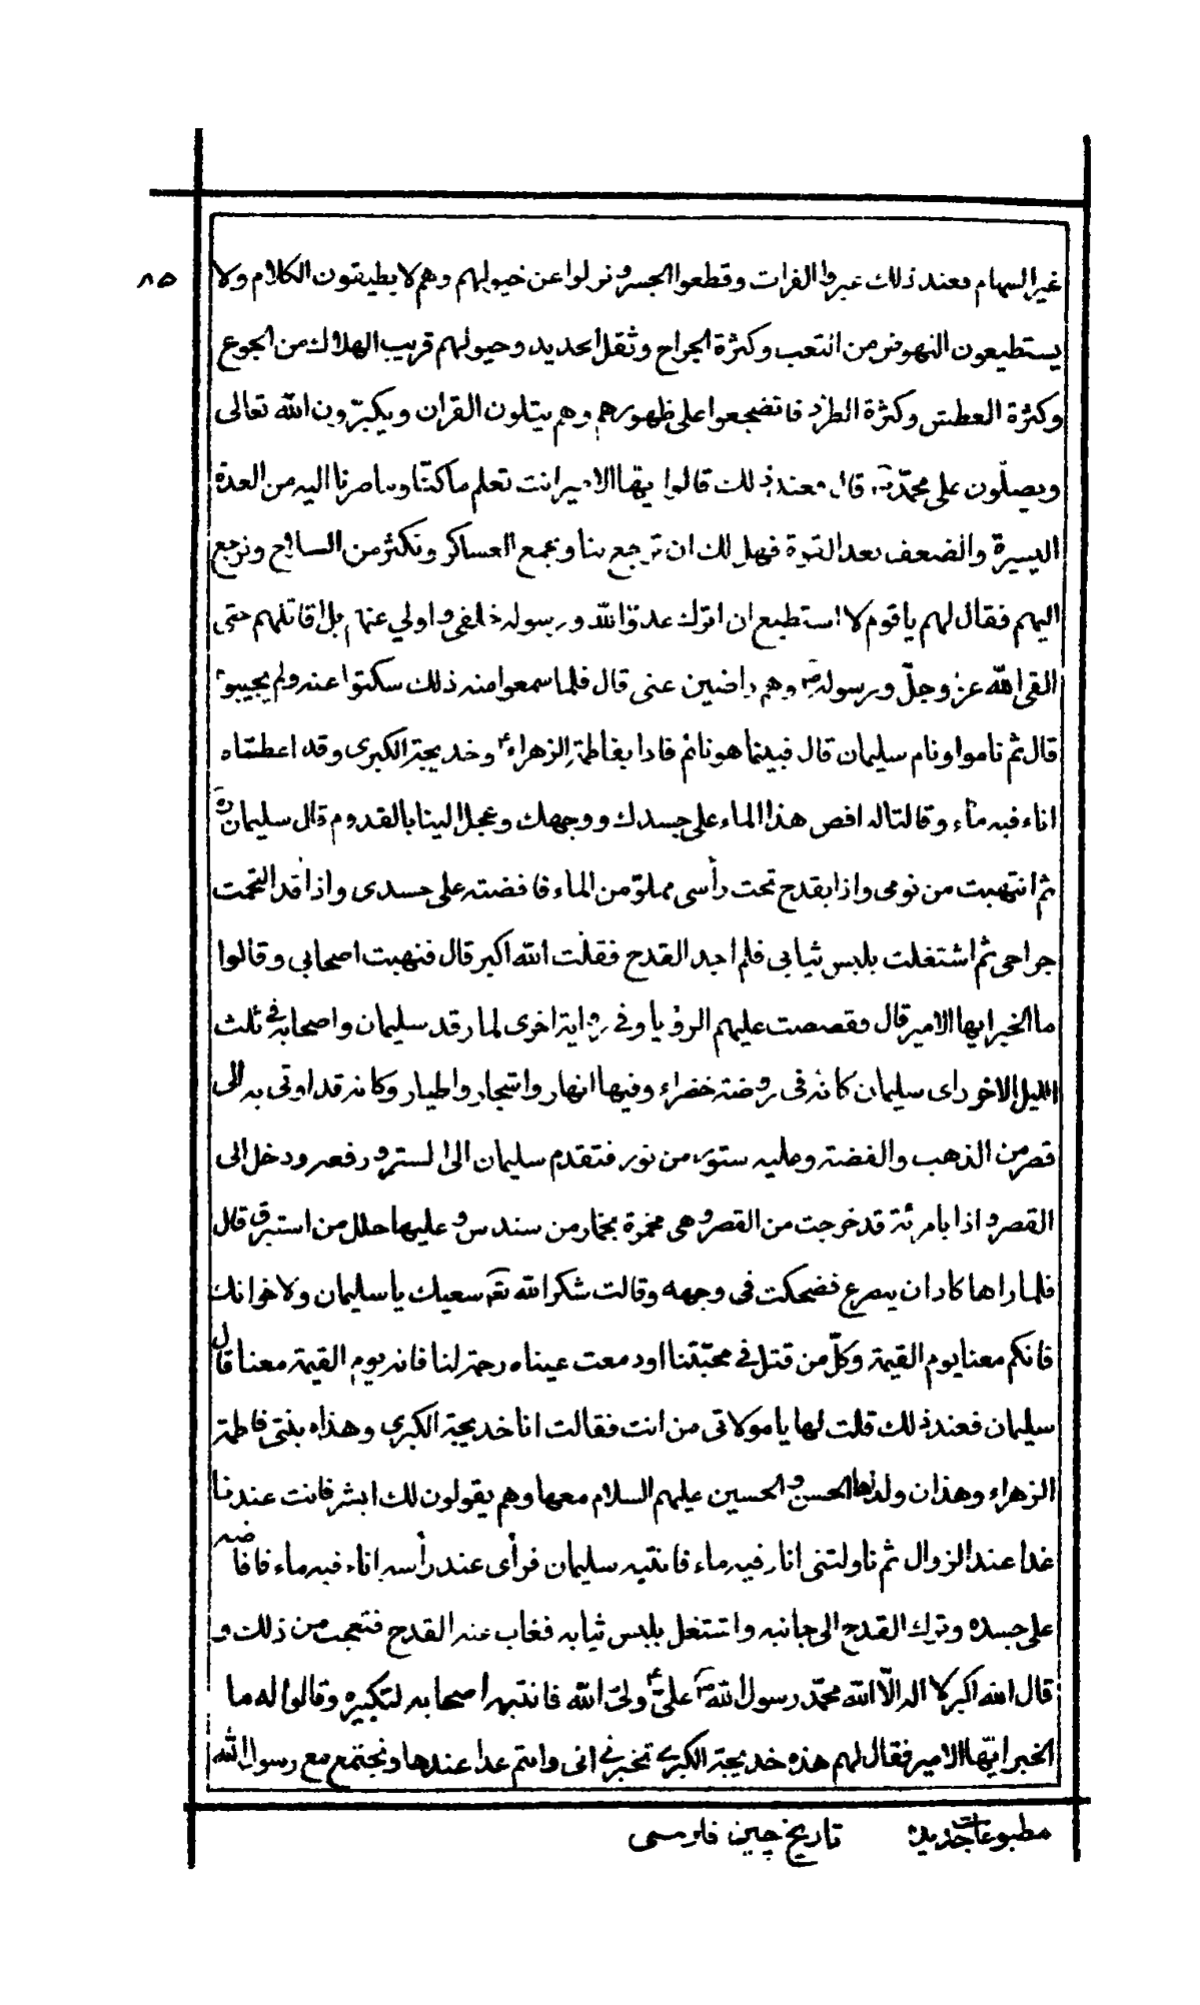 ٨٥
غير السهام فعند ذلك عبروا الفرات وقطعوا الجسر ونزلوا عن خيولهم وهم لا يطيقون الكلام ولا
يستطيعون النهوض من التعب وكثرة الجراح وثقل الحديد وخيولهم قريب الهلاك من الجوع
وكثرة العطش وكثرة الطرد فانضجعوا على ظهورهم وهم يتلون القران ويكبّرون الله تعالى
ويصلّون على محمّد ص قال فعند ذلك قالوا ايها الامير انت تعلم ما كنّا وما صرنا اليه من العدة
اليسيرة والضعف بعد القوة فهل لك ان ترجع بنا ونجمع العساكر ونكثر من السلاح ونرجع
اليهم فقال لهم يا قوم لا استطيع ان اترك عدوّ الله ورسوله خلفي واولي عنهم بل اقاتلهم حتى
القى الله عز وجلّ ورسوله ص وهم راضين عنى قال فلما سمعوا منه ذلك سكتوا عنه ولم يجيبوا
قال ثم ناموا ونام سليمان قال فبينما هو نائم فاذا بفاطمة الزهراء ع وخديجة الكبرى وقد اعطتاه
اناء فيه ماء وقالتا له افض هذا الماء على جسدك ووجهك وعجل الينا بالقدوم قال سليمان ره
ثم انتهبت من نومى واذا بقدح تحت رأسى مملوّ من الماء فافضته على جسدى واذا قد التحمت
جراحى ثم اشتغلت بلبس ثيابى فلم اجد القدح فقلت الله اكبر قال فنهبت اصحابى وقالوا
ما الخبر ايها الامير قال فقصصت عليهم الرؤيا وفي رواية اخرى لما رقد سليمان واصحابه في ثلث
الليل الاخر راى سليمان كانه فى روضة خضراء وفيها انهار واشجار واطيار وكانه قد اوتى به الى
قصر من الذهب والفضة وعليه ستور من نور فتقدم سليمان الى الستر ورفعه ودخل الى
القصر واذا بامرئة قد خرجت من القصر وهى مخمرة بخمار من سندس وعليها حلل من استبرق قال
فلما راها كاد ان يصرع فضحكت فى وجهه وقالت شكر الله تعه سعيك يا سليمان ولاخوانك
فانكم معنا يوم القيمة وكلّ من قتل في محبّتنا او دمعت عيناه رحمة لنا فانه يوم القيمة معنا قال
سليمان فعند ذلك قلت لها يا مولاتى من انت فقالت انا خديجة الكبرى وهذه بنتى فاطمة
الزهراء وهذان ولداها الحسن والحسين عليهم السلام معها وهم يقولون لك ابشر فانت عندنا
غدا عند الزوال ثم ناولتنى اناء فيه ماء فانتبه سليمان فرأى عند رأسه اناء فيه ماء فافاضه
على جسده وترك القدح الى جانبه واشتغل بلبس ثيابه فغاب عنه القدح فتعجب من ذلك و
قال الله اكبر لا اله الّا الله محمّد رسول الله ص علىّ ع ولىّ الله فانتبه اصحابه لتكبيره وقالوا له ما
الخبر ايّها الامير فقال لهم هذه خديجة الكبرى تخبرني انى وانتم غدا عندها ونجتمع مع رسول الله
مطبوعات جديده تاريخ چين فارسى